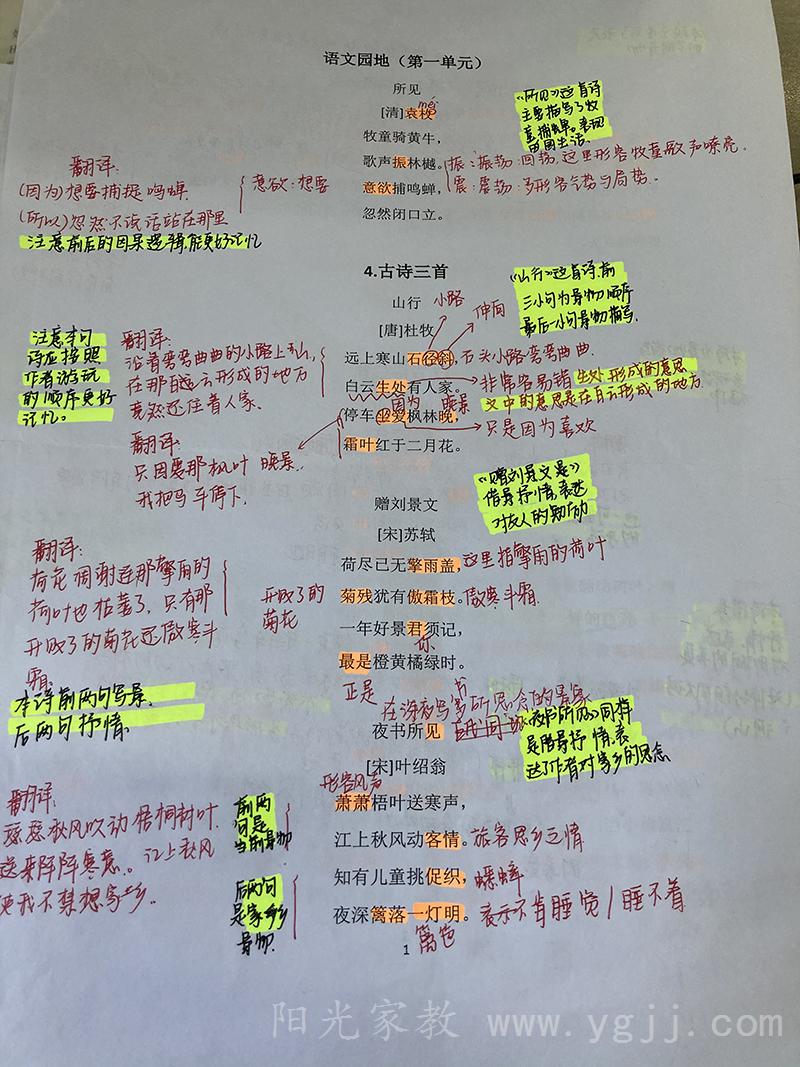 语文园地（第一单元）
所见
[清]袁枚
méi
牧童骑黄牛，
歌声振林樾。
意欲捕鸣蝉，
忽然闭口立。
《所见》这首诗
主要描写了牧
童捕蝉。表现
田园生活
振：振荡：回荡，这里形容牧童歌声嘹亮。
震：震荡：多形容气势与局势。
翻译：
(因为)想要捕捉鸣蝉
(所以)忽然不说话站在那里
意欲：想要
注意前后的因果逻辑能更好记忆
4.古诗三首
山行
[唐]杜牧
远上寒山石径斜，
白云生处有人家。
停车坐爱枫林晚，
霜叶红于二月花。
小路
倾向
《山行》这首诗，前
三小句为景物顺序
最后一小句景物描写.
石头小路弯弯曲曲
非常容易错 生处 形成的意思
文中的意思是在白云形成的地方
因为
晚景
只是因为喜欢
注意本句
诗应按照
作者游玩
的顺序更好
记忆。
翻译：
沿着弯弯曲曲的小路上山，
在那白云形成的地方
竟然还住着人家.
翻译：
只因爱那枫叶 晚景
我把马车停下.
赠刘景文
[宋]苏轼
荷尽已无擎雨盖，
菊残犹有傲霜枝。
一年好景君须记，
最是橙黄橘绿时。
《赠刘景文是》
借景抒情,表达
对友人的勉励
这里指擎雨的荷叶
傲寒斗霜.
开败了的
菊花
你
正是
翻译：
荷花凋谢连那擎雨的
荷叶也枯萎了，只有那
开败了的菊花还傲寒斗
霜.
本诗前两句写景
后两句抒情
在深夜写书所思念的景象
夜书所见
[宋]叶绍翁
萧萧梧叶送寒声，
江上秋风动客情。
知有儿童挑促织，
夜深篱落一灯明。
《夜书所见》同样
是借景抒情,表
达作者对家乡的思念
形容风声
旅客思乡之情
蟋蟀
表示不肯睡觉/睡不着
篱笆
翻译：
瑟瑟秋风吹动梧桐树叶
送来阵阵寒意。江上秋风
使我不禁想家乡.
前两
句是
当前景物
后两句
是家乡
景物.
1
阳光家教 www.ygjj.com